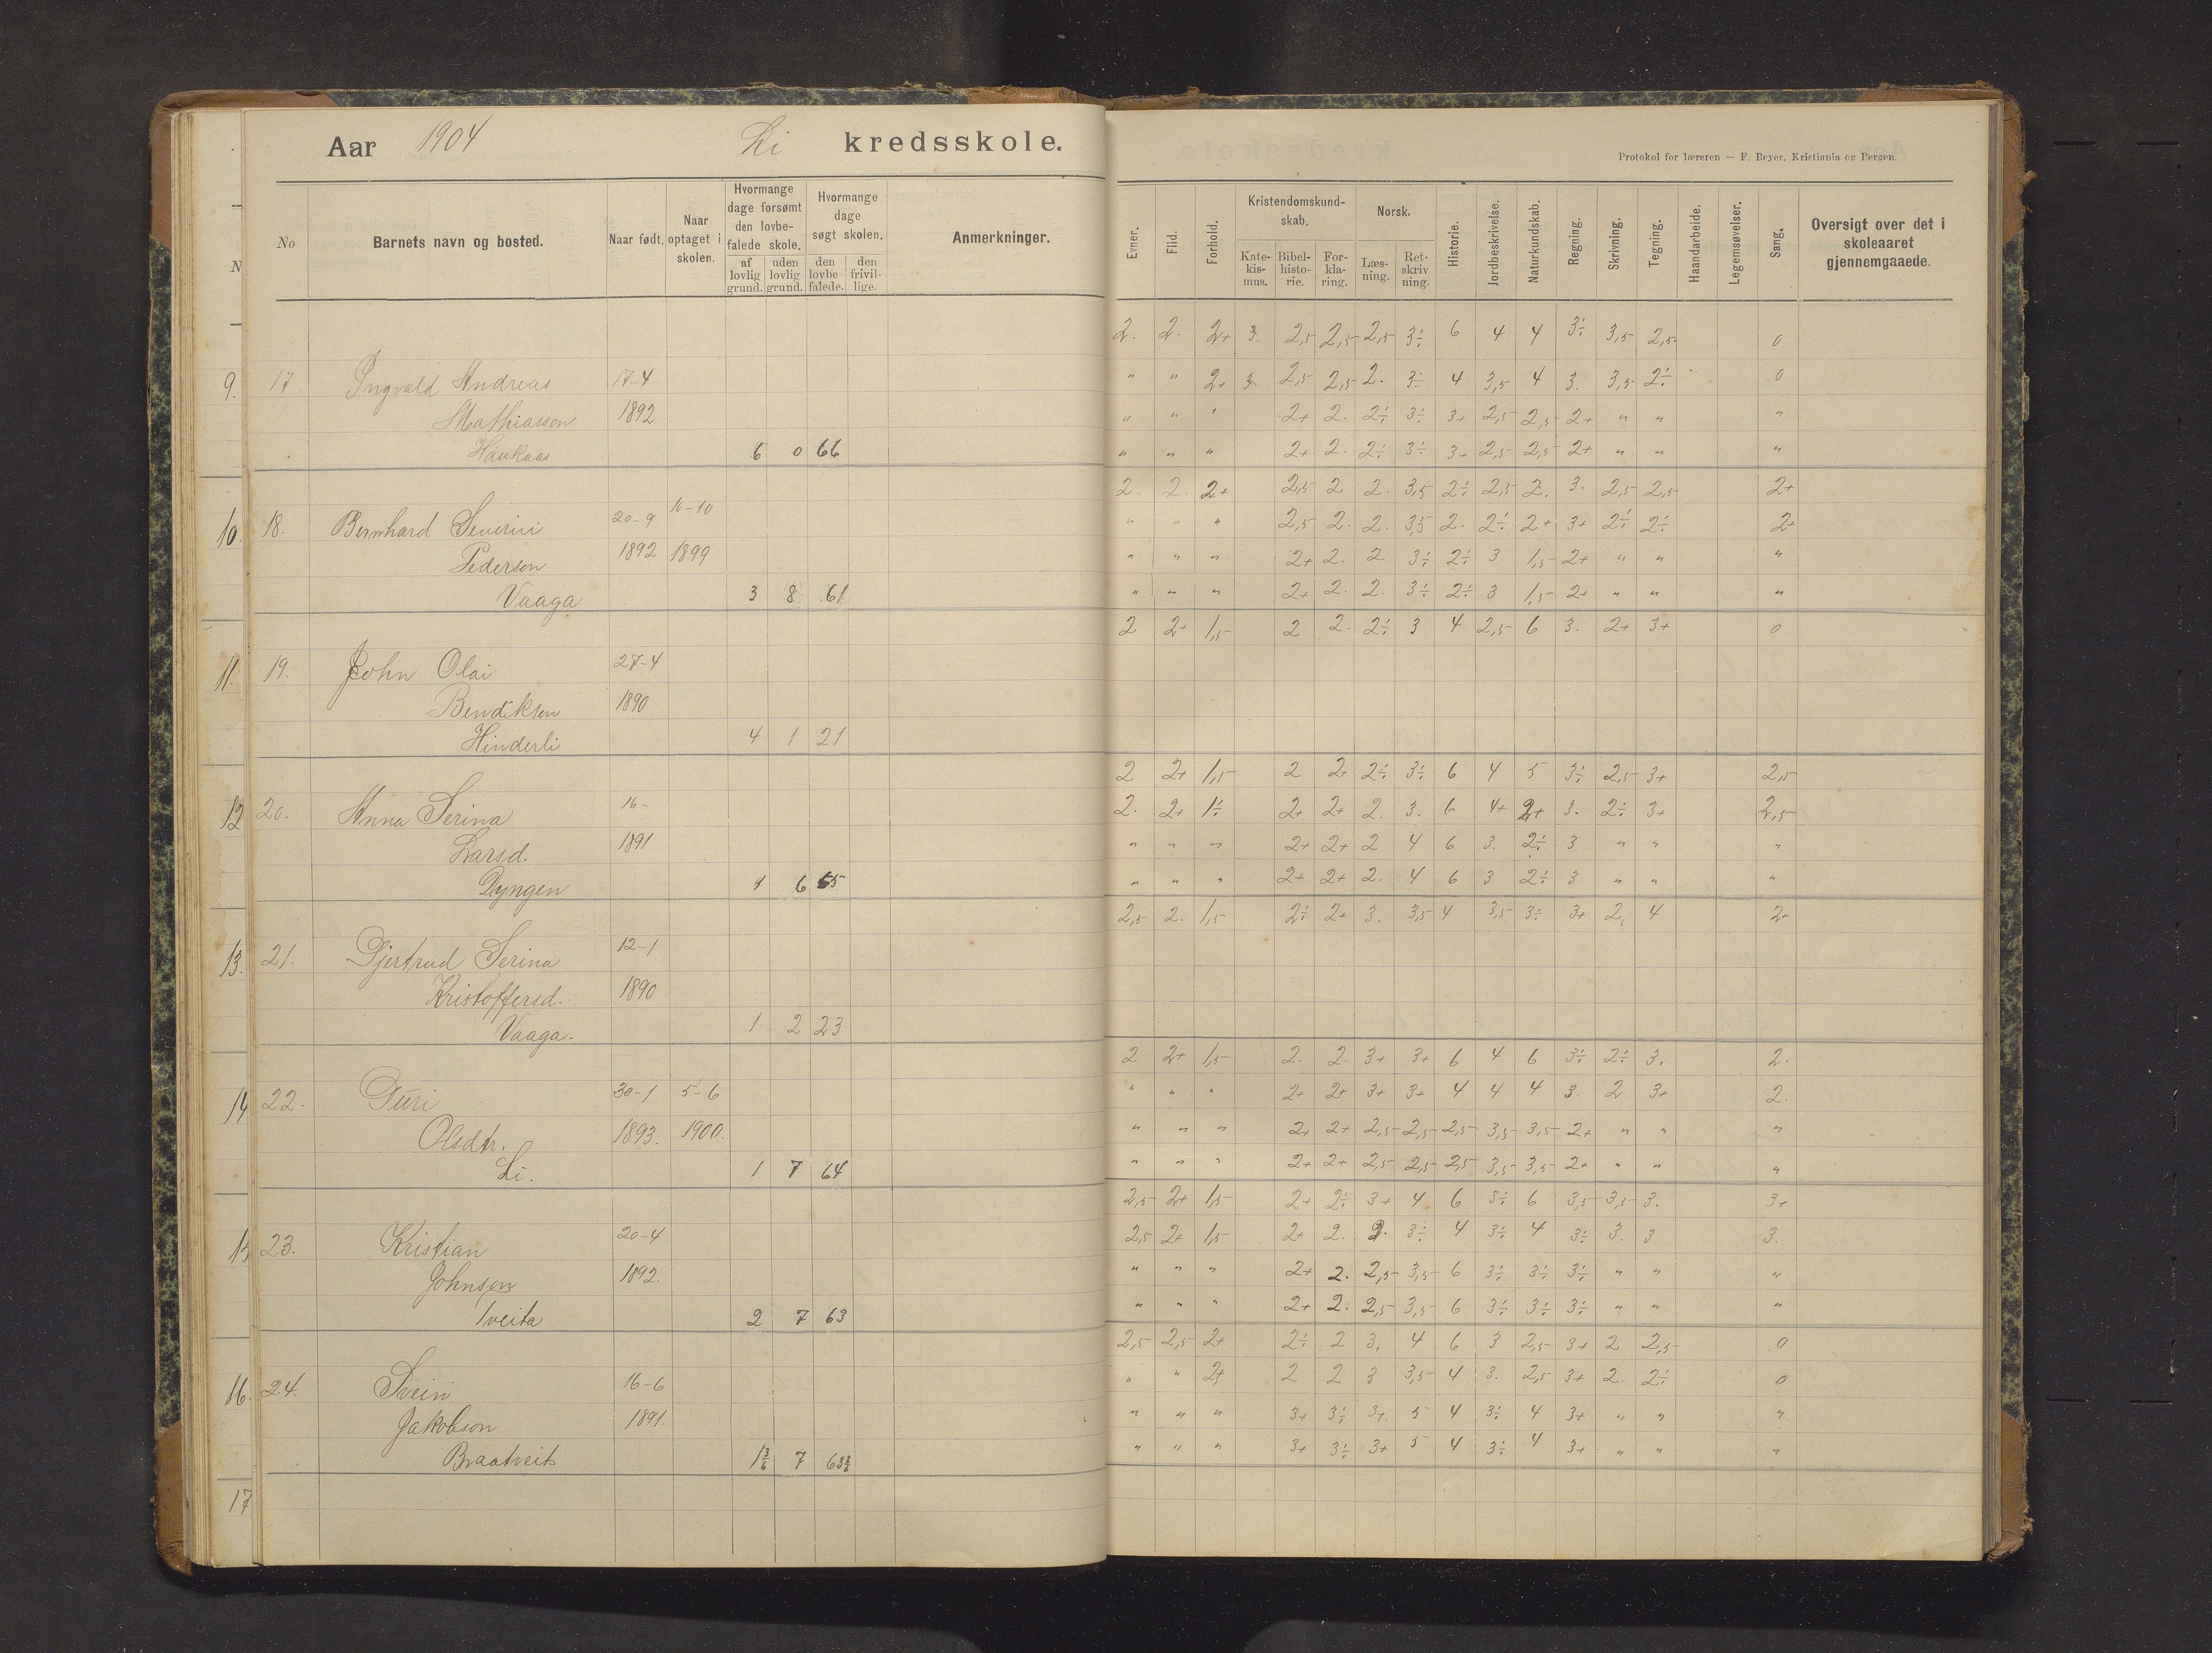 Aar 1904 Li kredsskole.
Protokol for læreren — F. Beyer, Kristiania og Bergen.
No Barnets navn og bosted. Naar født. Naar optaget i skolen. Hvormange dage forsømt den lovbefalede skole. af lovlig grund. uden lovlig grund. Hvormange dage søgt skolen. den lovbefalede. den frivillige. Anmerkninger.
Evner. Flid. Forhold. Kristendomskundskab. Katekismus. Bibelhistorie. Forklaring. Norsk. Læsning. Retskrivning. Historie. Jordbeskrivelse. Naturkundskab. Regning. Skrivning. Tegning. Haandarbeide. Legemsøvelser. Sang. Oversigt over det i skoleaaret gjennemgaaede.
2. 2. 2+ 3. 2,5 2,5 2,5 3÷ 6 4 4 3÷ 3,5 2,5 0
9. 17 Ingvald Andreas 17-4
" " 2+ 3 2,5 2,5 2. 3÷ 4 3,5 4 3. 3,5 2÷ 0
Mathiasson 1892
" " " 2+ 2. 2÷ 3÷ 3+ 2,5 2,5 2+ " " "
Haukaas 6 0 66
" " " 2+ 2. 2÷ 3÷ 3+ 2,5 2,5 2+ " " "
2. 2. 2+ 2,5 2 2. 3,5 2÷ 2,5 2. 3. 2,5 2,5 2+
10. 18. Bernhard Severin 20-9 16-10
" " " 2,5 2. 2. 3,5 2. 2÷ 2+ 3+ 2÷ 2÷ 2+
Pederson 1892 1899
" " " 2+ 2. 2 3÷ 2÷ 3 1,5 2+ " " "
Vaaga 3 8 61
" " " 2+ 2. 2. 3÷ 2÷ 3 1,5 2+ " " "
2 2+ 1,5 2 2. 2÷ 3 4 2,5 6 3. 2+ 3+ 0
11. 19. John Olai 27-4
Bendiksen 1890
Hinderli 4 1 21
2 2+ 1,5 2 2+ 2÷ 3÷ 6 4 5 3÷ 2,5 3+ 2,5
12 20. Anna Serina 16-
2. 2+ 1÷ 2+ 2+ 2. 3. 6 4+ 2+ 3. 2÷ 3+ 2,5
Larsd. 1891
" " " 2+ 2+ 2 4 6 3. 2÷ 3 " " "
Dyngen 1 6 65
" " " 2+ 2+ 2. 4 6 3 2÷ 3 " " "
2,5 2. 1,5 2÷ 2+ 3. 3,5 4 3,5 3÷ 3+ 2, 4 2+
13. 21. Gjertrud Serina 12-1
Kristoffersd. 1890
Vaaga. 1 2 23
2 2+ 1,5 2. 2. 3+ 3+ 6 4 6 3÷ 2÷ 3. 2.
14 22. Guri 30-1 5-6
" " " 2+ 2+ 3+ 3+ 4 4 4 3. 2 3+ 2.
Olsdtr. 1893. 1900.
" " " 2+ 2+ 2,5 2,5 2,5 3,5 3,5 2+ " " "
Li. 1 7 64
" " " 2+ 2+ 2,5 2,5 2,5 3,5 3,5 2+ " " "
2,5 2+ 1,5 2+ 2÷ 3+ 4 6 3÷ 6 3,5 3,5 3. 3+
15 23. Kristian 20-4
2,5 2+ 1,5 2+ 2. 3. 3÷ 4 3÷ 4 3÷ 3. 3 3.
Johnsen 1892.
" " " 2+ 2. 2,5 3,5 6 3÷ 3÷ 3÷ " " "
Tveita 2 7 63
" " " 2+ 2. 2,5 3,5 6 3÷ 3÷ 3÷ " " "
2,5 2,5 2+ 2÷ 2 3. 4 6 3 2,5 3+ 2 2,5 0
16. 24. Svein 16-6
" " 2+ 2 2 3 3,5 4 3. 2,5 3+ 2. 2÷ 0
Jakobson 1891.
" " " 3+ 3÷ 3+ 5 4 3÷ 4 3+ " " "
Braatveit 1 3/6 7 63 3/6
" " " 3+ 3÷ 3+ 5 4 3÷ 4 3+ " " "
17